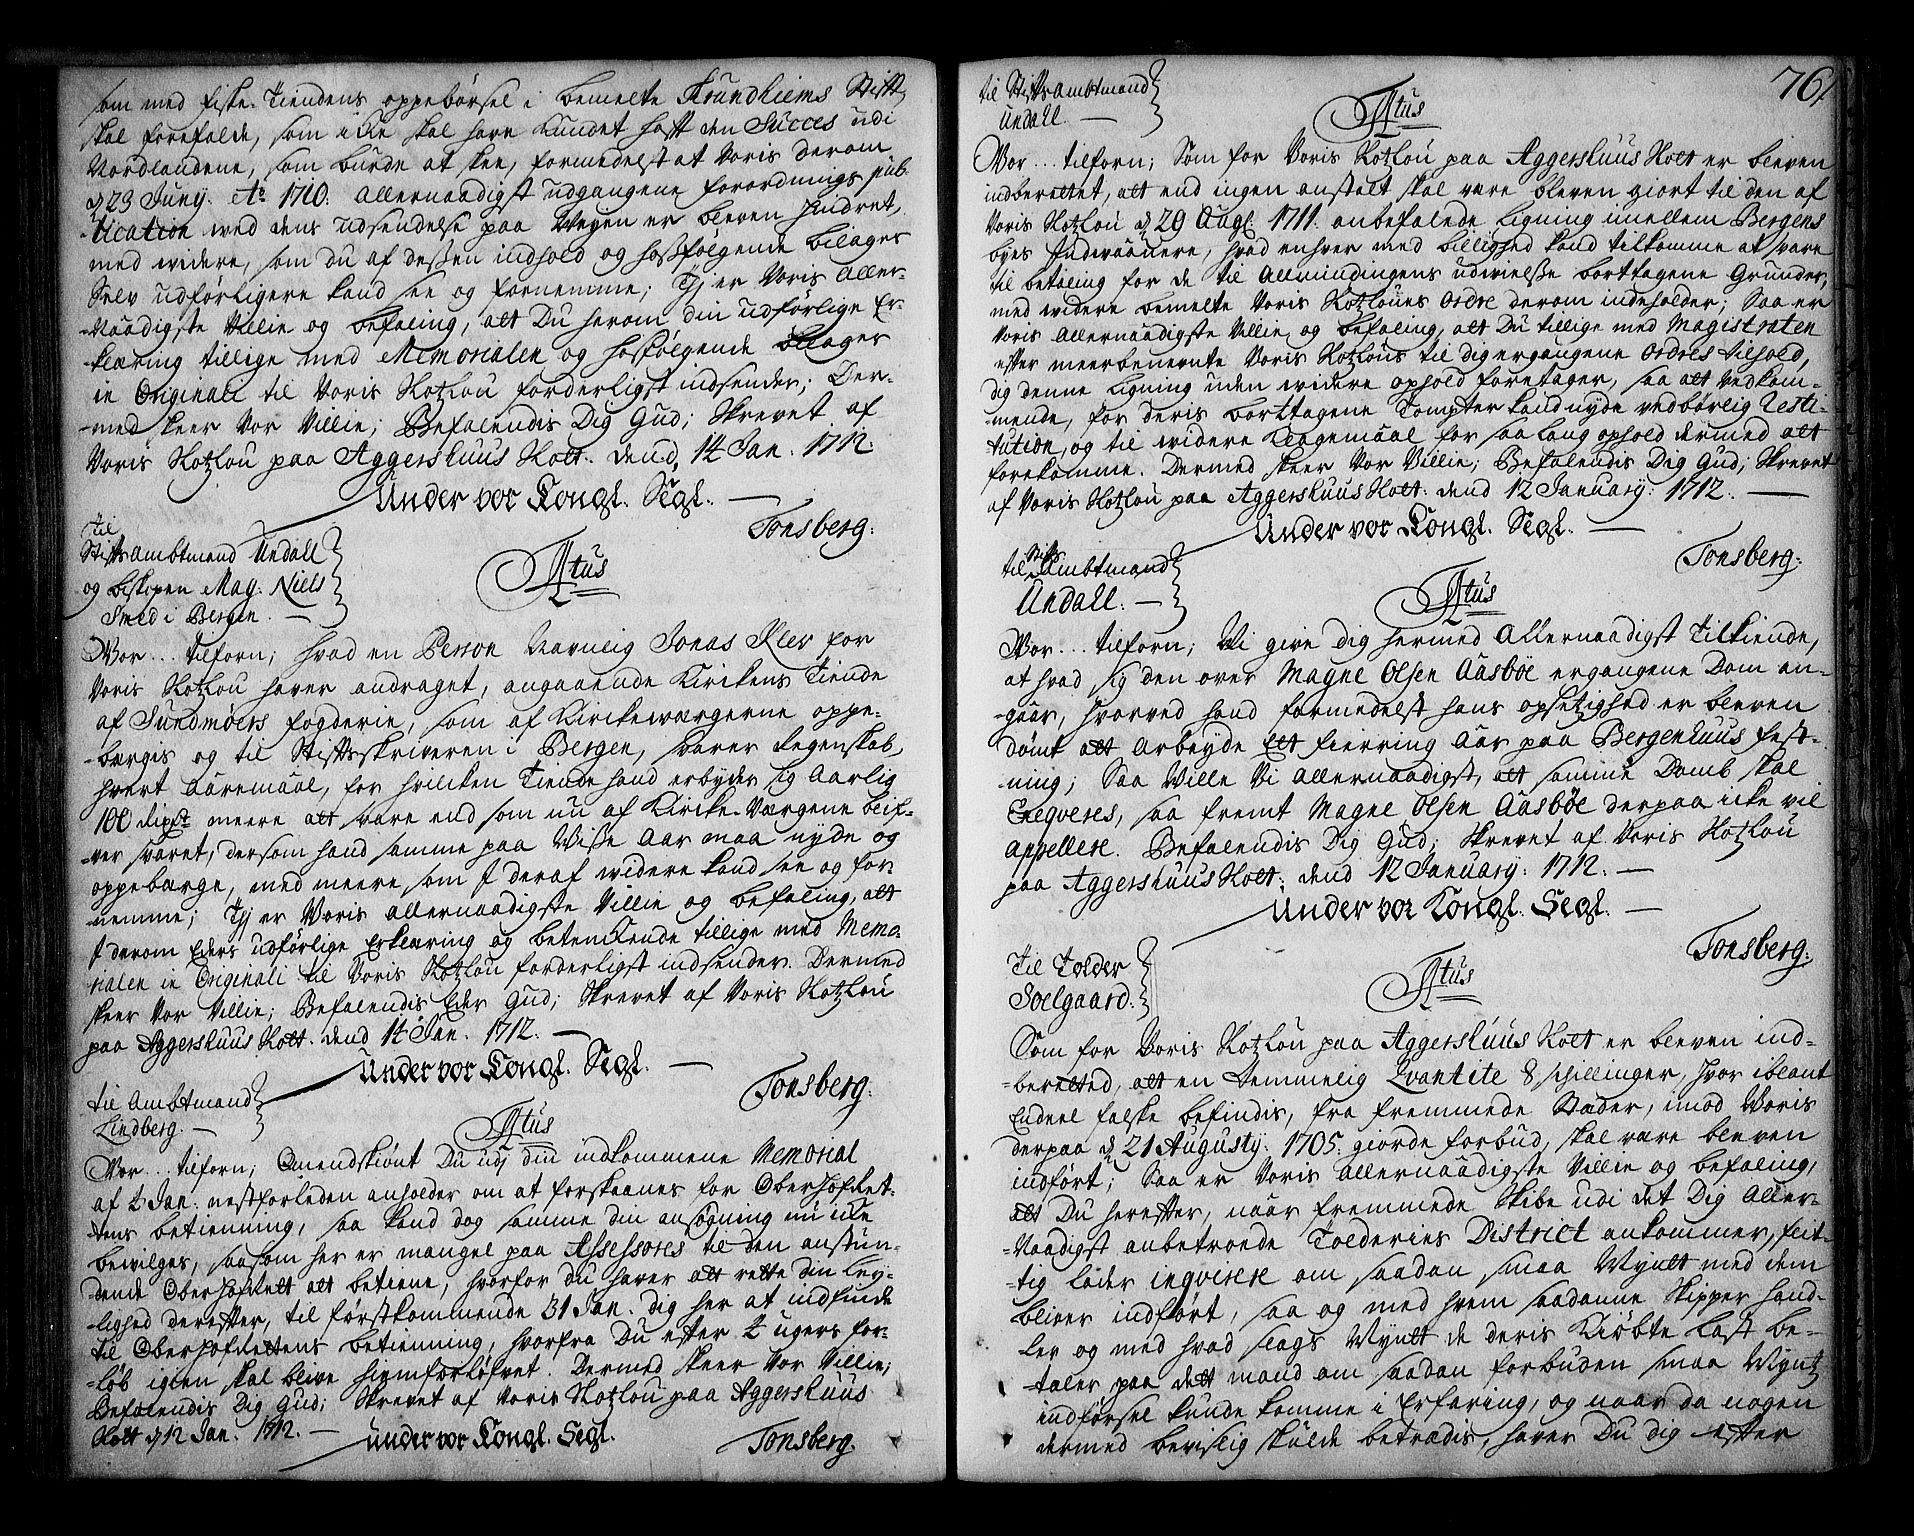 som med Fiske-Tiendens oppebörsel i bemelte Trundhiems Stift
skal forefalde, som icke skal have kundet hafft den Succes udi
Nordlandene, som burde at skee, formedelst at Voris derom
d. 23 Junij Ao 1710. allernaadigst udgangene forordnings pub-
-lication ved dens udsendelse paa Veyen er bleven hindret,
med widere, som du af dessen indhold og hossfølgende bilager
Selv udförligere kand see og fornemme; Thj er Voris Aller-
-Naadigste Villie og befaling, att Du herom din udförlige Er-
-klæring tillige med Memorialen og hosfølgende bilager
in Originali til Voris Slotzlou forderligst indsender; Der-
-med skeer Vor Villie, Befalendis Dig Gud; Skrevet af
Voris Slotzlou paa Aggershuus Slott. dend. 14 Jan. 1712.
Under vor Kongl. Segl.
Tonsberg.
Til
StiftsAmbtmand Undall
og biskopen Mag: Niels
Smed i Bergen.
Atus
Vor... tilforn; hvad en Person Navnlig Jonas Klev for
Voris Slotzlou haver andraget, angaaende Kirckens Tiende
af Sundmöers fogderie, som af Kirckeværgerne oppe-
-bærgis og til Stiftsskriveren i Bergen, giøres Regenskab,
hvert aaremaal, for hvilcken Tiende hand erbyder sig Aarlig
100 dlr meere att svare end som nu af Kircke-Værgene blif-
-ver svaret, dersom hand samme paa Visse Aar maa nyde og
oppebærge, med meere, som I deraf widere kand see og for-
nemme; Thj er Voris allernaadigste Villie og befaling, att
I derom Eders udförlige Erklæring og betenkende tillige med Memo-
rialen in Originali til Voris Slotzlou forderligst indsender. Dermed
skeer Vor Villie; Befalendis Eder Gud; Skrevet af Voris Slotzlou
paa Aggershuus Slott. dend 14 Jan. 1712.
Under vor Kongl. Segl.
Tonsberg.
Til Ambtmand
Lindberg.
Atus
Vor... tilforn; Omendskiønt Du udj din indkommene Memorial
af 2 Jan. nestforleden anholder om at forskaanes for Oberhofret-
-tens betienning, saa kand dog samme din ansøgning nu icke
bevilges, saasom her er mangel paa Assessores til den anstun-
-dende Oberhofrett att betiene, hvorfor Du haver att rette din Ley-
-lighed derefter, til førstkommende 31 Jan. dig her at indfinde
til Oberhofrettens betienning, hvorfra Du efter 2 ugers for-
-løb igien skal blive hiemforløfvet. Dermed skeer Vor Villie;
Befalendis Dig Gud; Skrevet af Voris Slotzlou paa Aggershuus
Slott d. 12 Jan. 1712.
under vor Kongl. Segl.
Tonsberg.
76.
Til StiftsAmbtmand
Undall.
Atus
Vor... tilforn; Som for Voris Slotzlou paa Aggershuus Slott er bleven
indberettet, att end ingen anstalt skal være bleven giort til den af
Voris Slotzlou d. 29 Augl. 1711. anbefalede ligning imellem Bergens
byes Indvaanere, hvad enhver med billighed kand tilkomme at svare
til betaling for de til Allmindingens udvielsse borttagene Grunder,
med widere bemelte Voris Slotzloues Ordre derom indeholder; Saa er
Voris Allernaadigste Villie og befaling, att Du tillige med Magistraten
efter meerbenevnte Voris Slotzlous til dig ergangene Ordres tilhold,
dig denne ligning uden widere ophold foretager, saa att vedkom-
-mende, for deris borttagene Tompter kand nyde vedbörlig Resti-
tution, og til widere Klagemaal for saa lang ophold dermed att
forekomme. Dermed skeer Vor Villie; Befalendis Dig Gud; Skrevet
af Voris Slotzlou paa Aggershuus Slott. dend 12 January. 1712.
Under vor Kongl. Segl.
Tonsberg.
Til Stifts Ambtmand
Undall.
Atus
Vor... tilforn; Vi give Dig hermed Allernaadigst Tilkiende,
at hvad sig den over Magne Olsen Aasbøe ergangene Dom an-
-gaar, hvorved hand formedelst hans opsetzighed er bleven
dømt att Arbeyde Ett fierring Aar paa Bergenhuus fest-
-ning; Saa Ville Vi allernaadigst, att samme Domb skal
Exeqveres, saa fremt Magne Olsen Aasbøe derpaa icke vil
appellere. Befalendis Dig Gud; Skrevet af Voris Slotzlou
paa Aggershuus Slott: dend 12 January. 1712.
Under vor Kongl. Segl.
Tonsberg.
Til Tolder
Soelgaard.
Atus
Som for Voris Slotzlou paa Aggershuus Slott er bleven ind-
-berettet, att en temmelig Qvantite 8 skillinger, hvor iblant
Endeel falske befindis, fra fremmede Stæder, imod Voris
derpaa d. 21 Augustij. 1705. giorde forbud, skal være bleven
indført; Saa er Voris allernaadigste Villie og befaling,
att Du herefter, naar fremmede Skibe udi det Dig Aller-
-Naadigst anbetroede Tolderies District ankommer, flit-
-tig lader inqvirere om saadan smaa Myntt med dem
bliver indført, saa og med hvem saadanne Skipper hand-
ler og med hvad slags Myntt de deris Kiøbte Last be-
-taler paa dett mand om saadan forbuden smaa Myntz
indførsel kunde komme i Erfaring, og naar da nogen
dermed bevislig skulde betrædis, haver Du dig efter